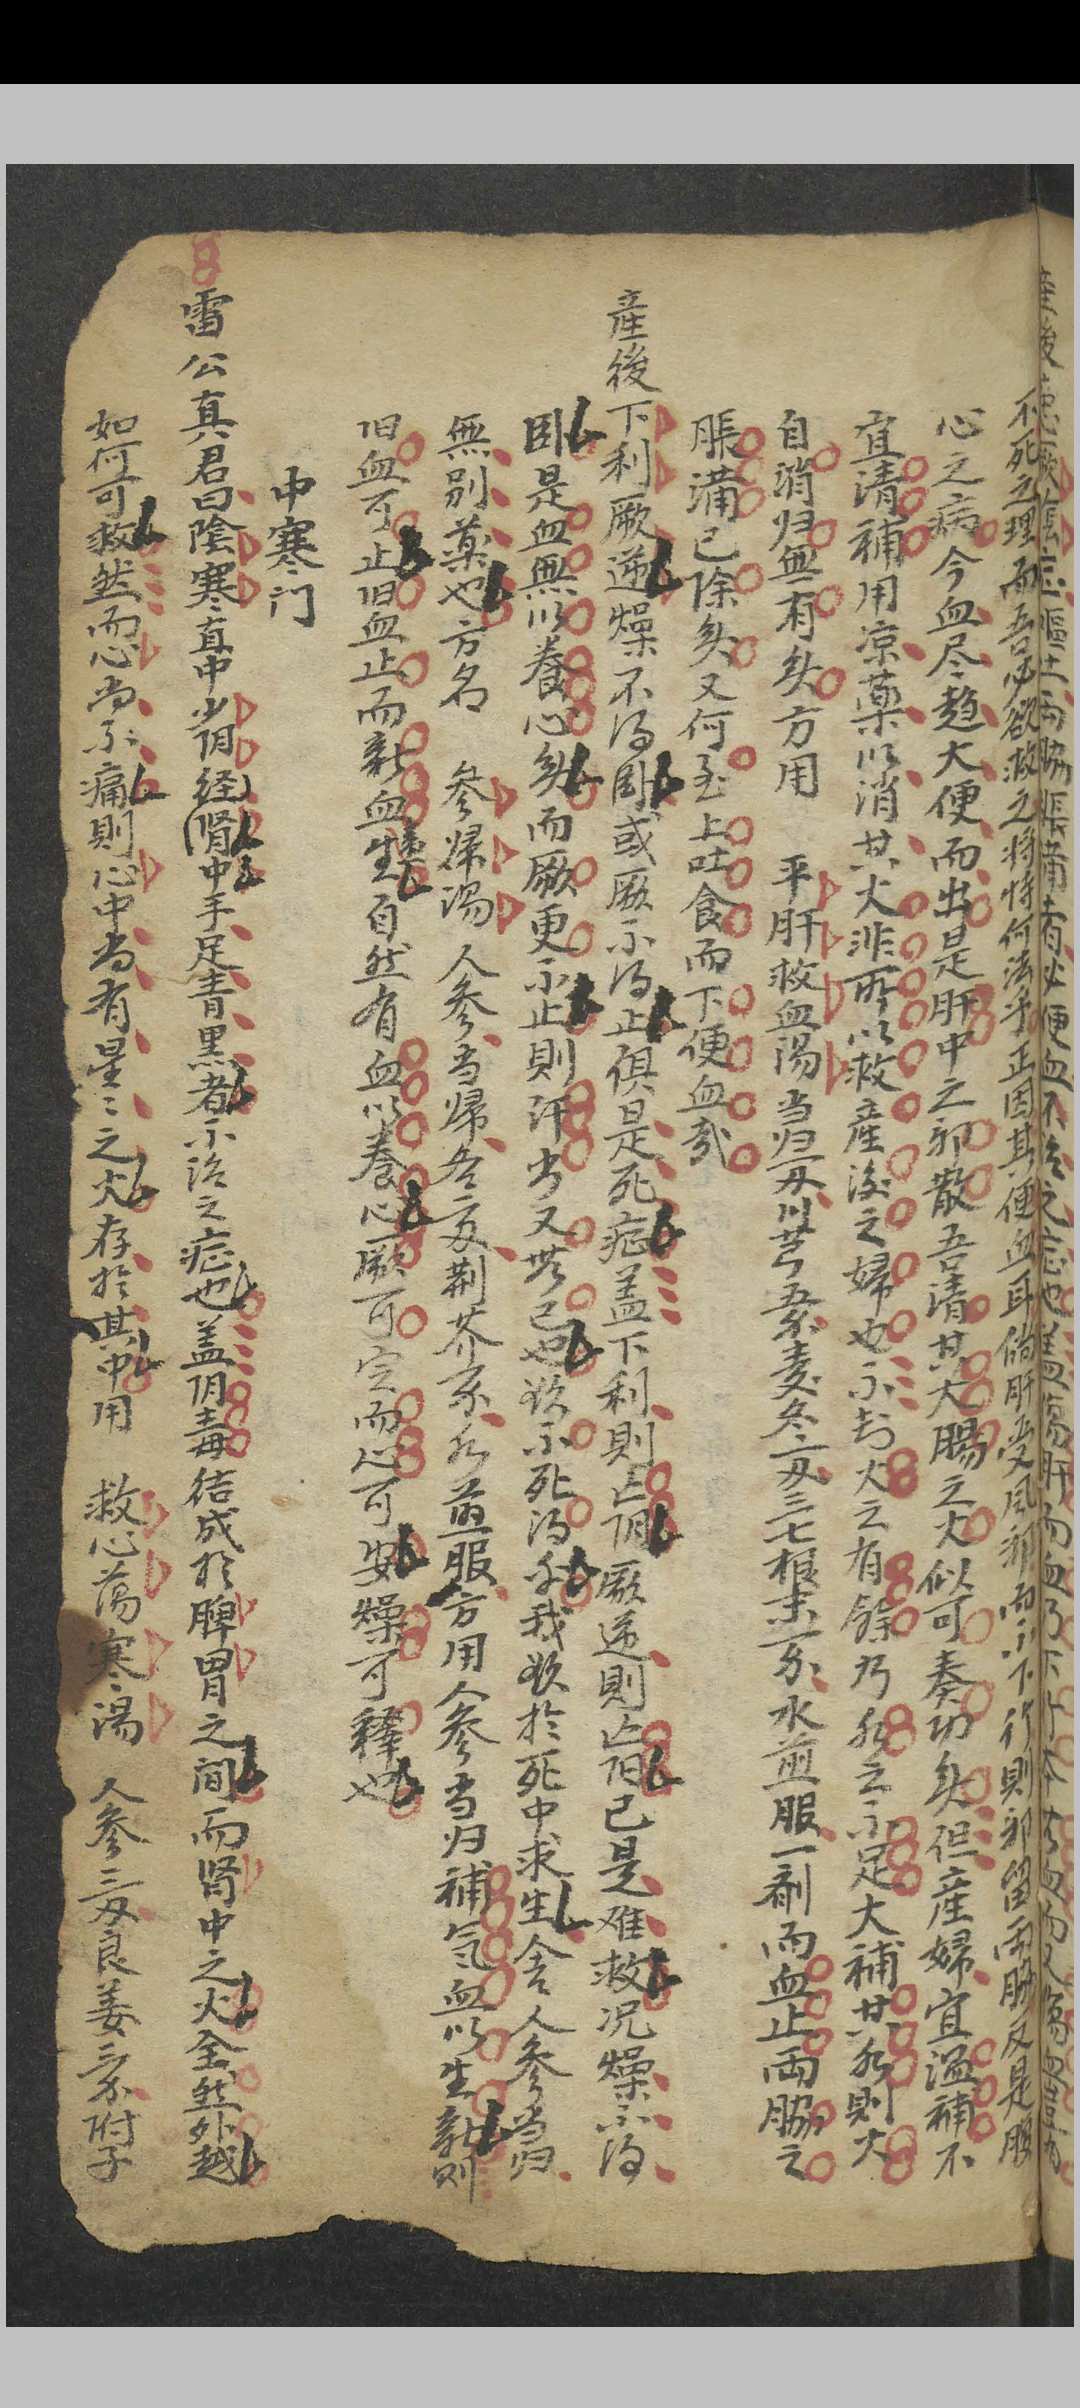 不死之理而吾必欲救之将恃何法乎正因其便血耳倘肝受风邪而不下行則邪留両脇反是腹
心之病今血尽趋大便而出是肝中之邪散吾清其大腸之火似可奏功矣但産婦宜温補不
宜清補用凉薬以消其火非所以救産後之婦也不知火之有餘乃水之不足大補其水則火
自消归無有矣方用 平肝救血湯 当归 川芎 麦冬 三七根末一水煎服一剤而血止両脇之
脹満已除矣又何至上吐食而下便血哉
産後下利厥逆燥不得卧或厥不得止俱是死症盖下利則亡阴厥逆則亡阳已是难救况燥不得
卧是血無以養心矣而厥更不止則汗出又無已也欲不死得乎我欲於死中求生舍人参当归
無别薬也方名 参帰湯 人参当帰各荆芥水煎服方用人参当归補气血以生新則
旧血可止旧血止而新血生自然有血以養心厥可定而心可安燥可释也
中寒门
雷公真君曰陰寒直中少阴经肾中手足青黑者不治之症也盖阴毒结成於脾胃之间而肾中之火全然外越
如何可救然而心尚不痛則心中尚有星ミ之火存於其中用 救心蕩寒湯 人参三良姜三附子